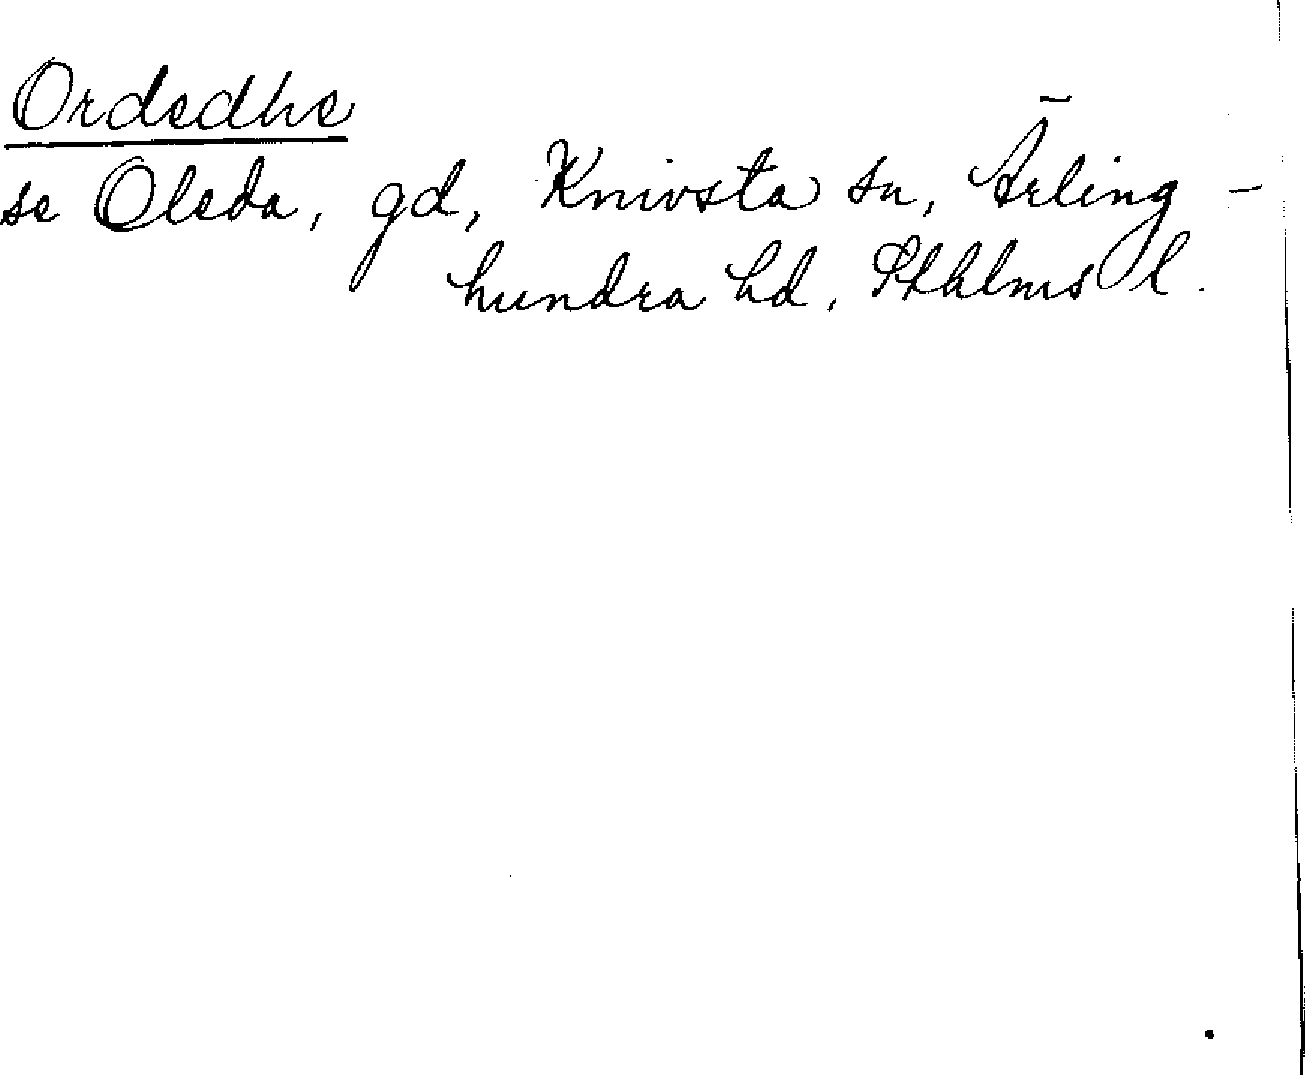 Ordedhe
se Oleda, gd, Knivsta sn, Ärling-
hundra hd, Sthlms l.